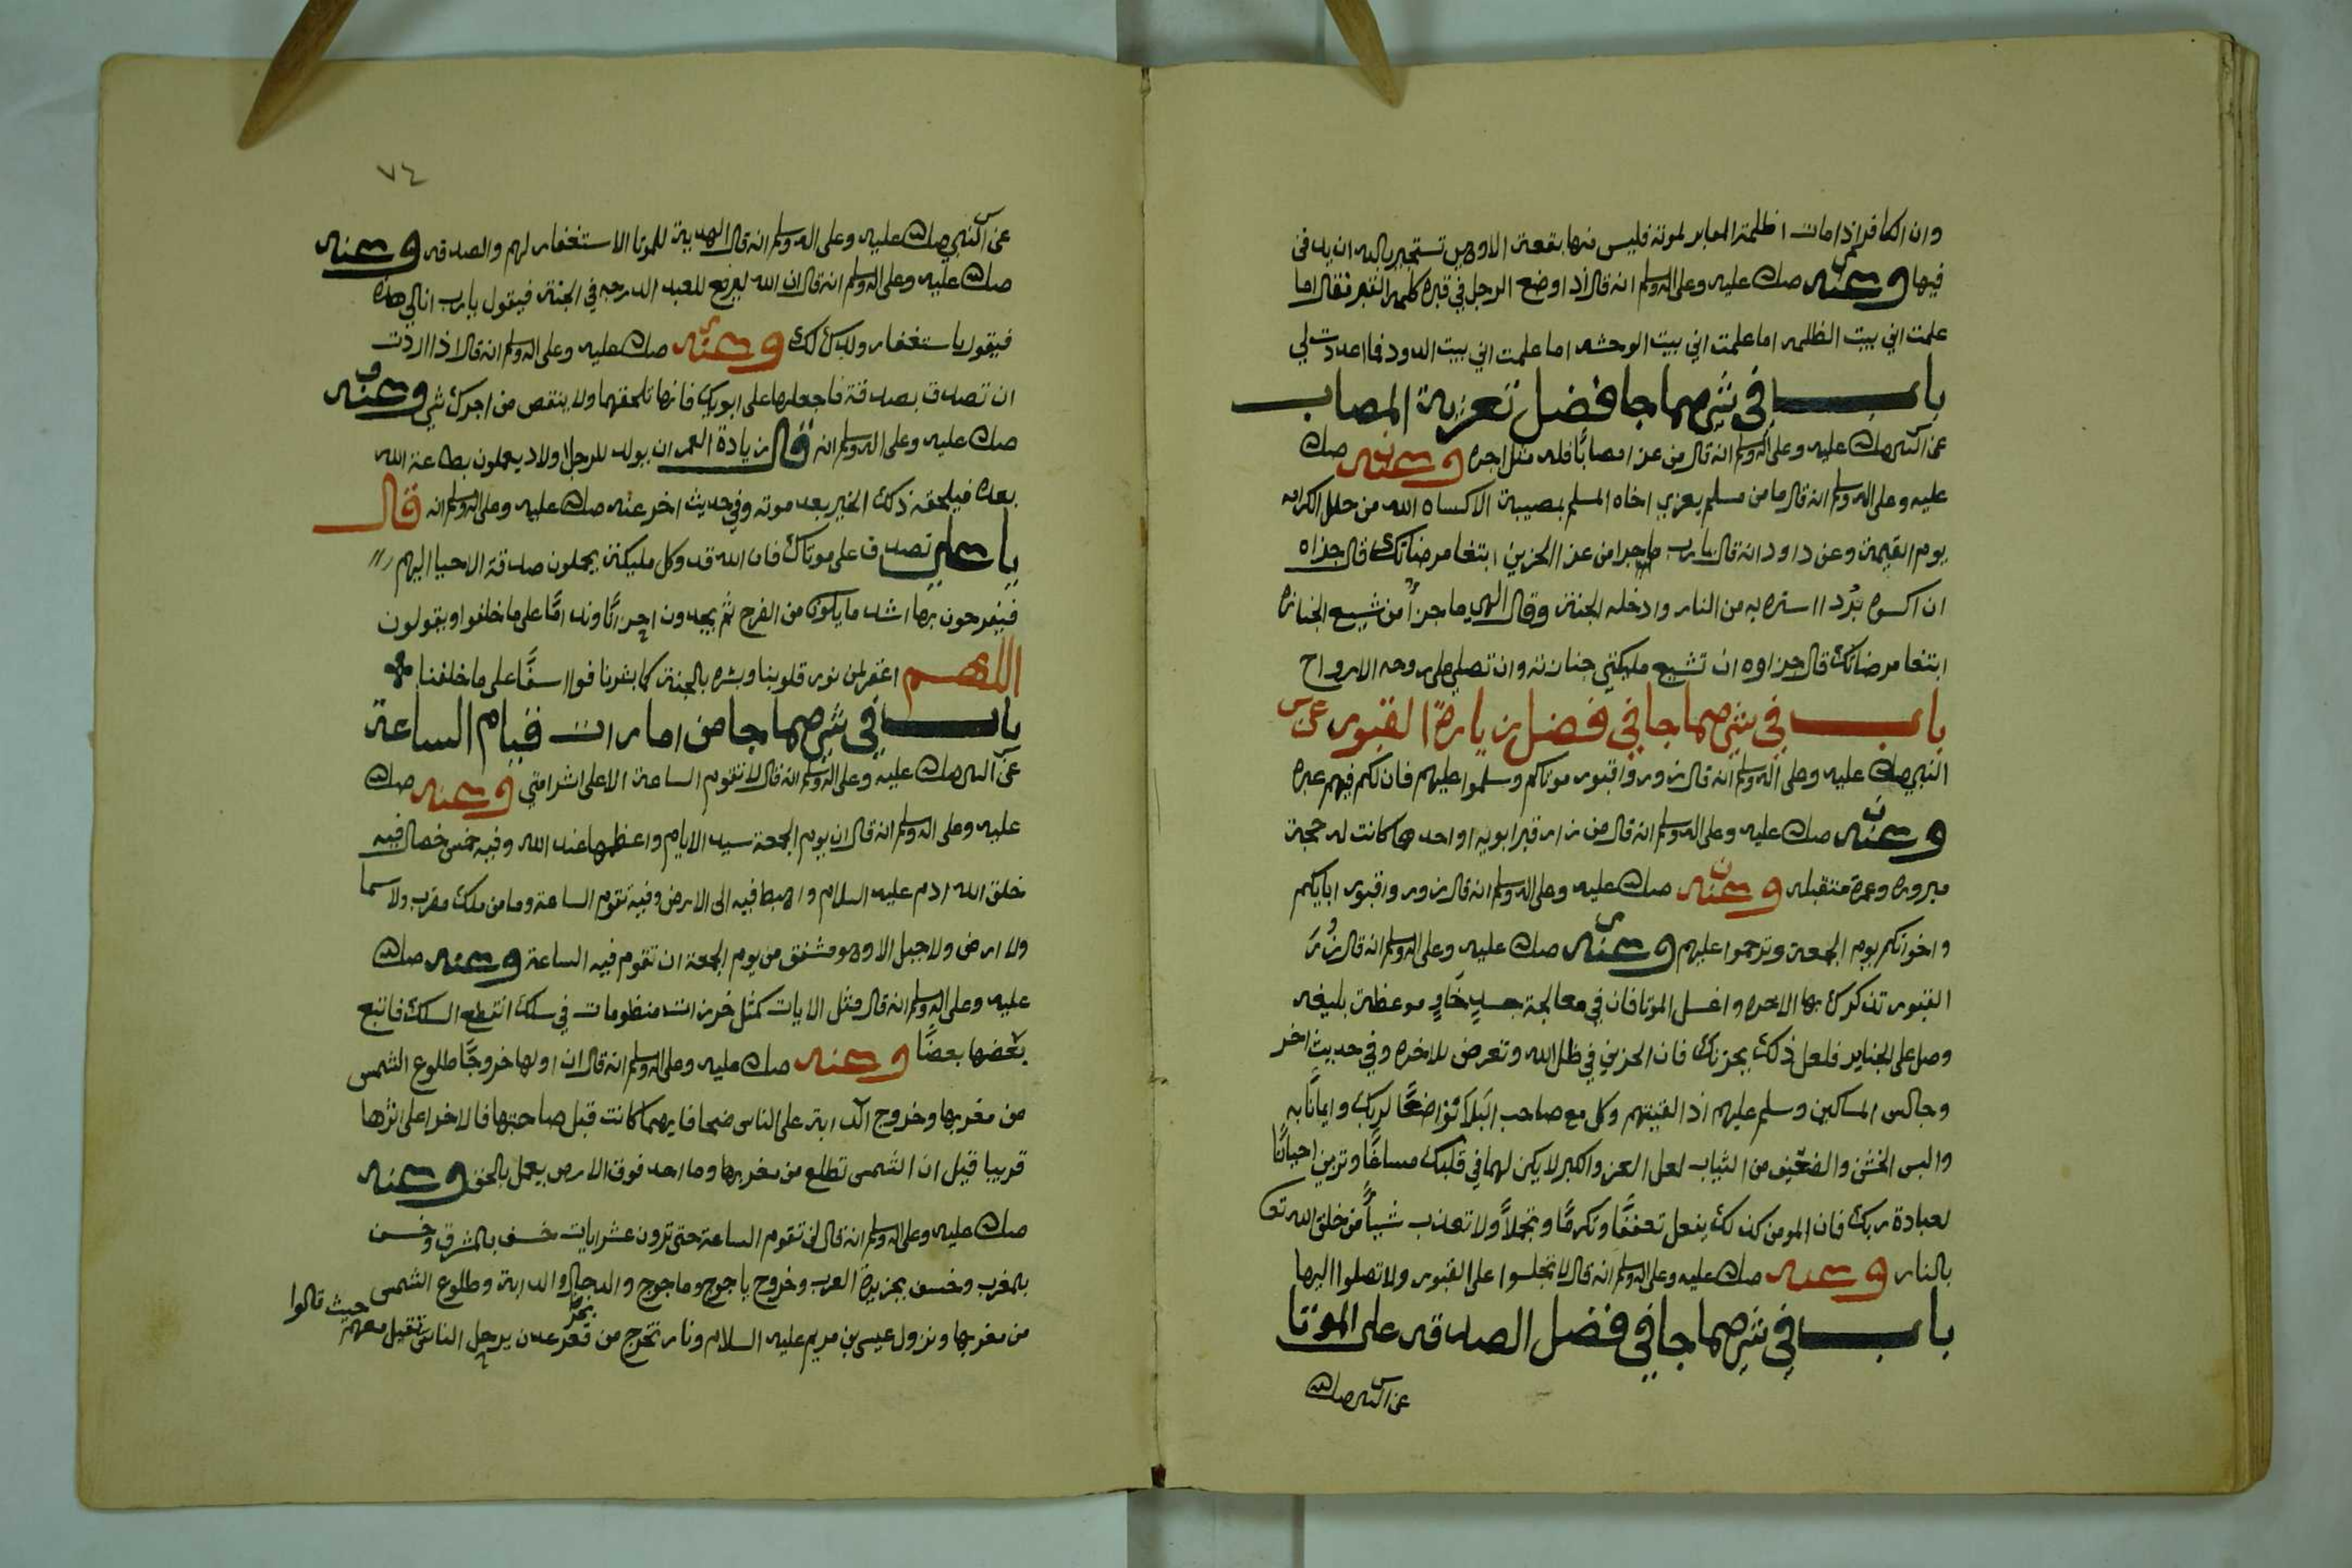 وان الكافر اذا مات اظلمة المعابر لموته فليس منها بقعة الا وهي تستجير بالله ان يدفن
فيها وعنه صلى الله عليه وعلى اله وسلم انه قال اذا وضع الرجل في قبره كلمه القبر فقال اما
علمت اني بيت الظلمه اما علمت اني بيت الوحشه اما علمت اني بيت الدود فما اعددت لي
باب في شي مما جا فضل تعزية المصاب
عن النبي صلى الله عليه وعلى اله وسلم انه قال من عزا مصابًا فله مثل اجره وعنه صلى الله
عليه وعلى اله وسلم انه قال ما من مسلم يعزي اخاه المسلم بمصيبة الا كساه الله من حلل الكرامه
يوم القيمة وعن داود انه قال يارب ما جزا من عزا الحزين ابتغا مرضاتك قال جزاه
ان اكسوه بُردا استره به من النار وادخله الجنة وقال الهي ما جزأ من شيع الجنازه
ابتغا مرضاتك قال جزاوه ان تشيع مليكتي جنازته وان تصلي على روحه الارواح
باب في شي مما جا في فضل زيارة القبور عن
النبي صلى الله عليه وعلى اله وسلم انه قال زوروا قبور موتاكم وسلموا عليهم فان لكم فيهم عبره
وعنه صلى الله عليه وعلى اله وسلم انه قال من زار قبر ابويه او احدهما كانت له حجة
مبروره وعمرة متقبله وعنه صلى الله عليه وعلى اله وسلم انه قال زوروا قبور ابايكم
واخوانكم يوم الجمعة وترحموا عليهم وعنه صلى الله عليه وعلى اله وسلم انه قال زُرَ
القبور تذكرك بها الاخره واغسل الموتا فان في معالجة جسدٍ خَاوٍ موعظة بليغه
وصل على الجنايز فلعل ذلك يحزنك فان الحزين في ظل الله وتعرض للاخره وفي حديث اخر
وجالس المساكين وسلم عليهم اذا لقيتهم وكل مع صاحب البَلا تواضعًا لربك وايمانًا به
والبس الخشن والضعيف من الثياب لعل العز والكبر لا يكن لهما في قلبك مساغًا وتزين احيانًا
لعبادة ربك فان المومن كذلك يفعل تعففًا وتكرمًا وتجملاً ولا تعذب شيأً من خلق الله تعا
بالنار وعنه صلى الله عليه وعلى اله وسلم انه قال لا تجلسوا على القبور ولا تصلوا اليها
باب في شي مما جا في فضل الصدقه على الموتا
عن النبي صلى الله
٧٤
عن النبي صلى الله عليه وعلى اله وسلم انه قال الهدية للموتا الاستغفار لهم والصدقه وعنه
صلى الله عليه وعلى اله وسلم انه قال ان الله ليرفع للعبد الدرجه في الجنة فيقول يارب انا لي هذه
فيقول باستغفار ولدك لك وعنه صلى الله عليه وعلى اله وسلم انه قال اذا اردت
ان تصدق بصدقة فاجعلها على ابويك فانها تلحقهما ولا ينتقص من اجرك شي وعنه
صلى الله عليه وعلى اله وسلم انه قال زيادة العمر ان يولد للرجل اولاد يعملون بطاعة الله
بعده فيلحقه ذلك الخير بعد موته وفي حديث اخر عنه صلى الله عليه وعلى اله وسلم انه قال
يا علي تصدق على موتاك فان الله قد وكل مليكة يحملون صدقة الاحيا اليهم
فيفرحون بها اشد ما يكون من الفرح ثم يجدون اجزانًا وندامًا على ما خلفوا ويقولون
اللهم اغفر لمن نور قلوبنا وبشره بالجنة كما بشرنا فوا اسفًا على ما خلفنا
باب في شي مما جا من امارات قيام الساعة
عن النبي صلى الله عليه وعلى اله وسلم انه قال لا تقوم الساعة الا على اشرامتي وعنه صلى الله
عليه وعلى اله وسلم انه قال ان يوم الجمعة سيد الايام واعظمها عند الله وفيه خمس خصال فيه
خلق الله ادم عليه السلام واهبط فيه الى الارض وفيه تقوم الساعة وما من ملك مقرب ولا سما
ولا ارض ولا جبل الا وهو مشفق من يوم الجمعة ان تقوم فيه الساعة وعنه صلى الله
عليه وعلى اله وسلم انه قال مثل الايات كمثل خرزات منظومات في سلك انقطع السلك فاتبع
بعضها بعضًا وعنه صلى الله عليه وعلى اله وسلم انه قال ان اولها خروجًا طلوع الشمس
من مغربها وخروج الدابة على الناس ضحا فايهما كانت قبل صاحبتها فالاخرا على اثرها
قريبا قيل ان الشمس تطلع من مغربها وما احد فوق الارض يعمل بالحق وعنه
صلى الله عليه وعلى اله وسلم انه قال لن تقوم الساعة حتى ترون عشر ايات خسف بالمشرق وخسف
بالمغرب وخسف بجزيرة العرب وخروج ياجوج وماجوج والدجال والدابة وطلوع الشمس
من مغربها ونزول عيسى بن مريم عليه السلام ونار تخرج من قعر عدن يرحل الناس تقيل معهم حيث قالوا